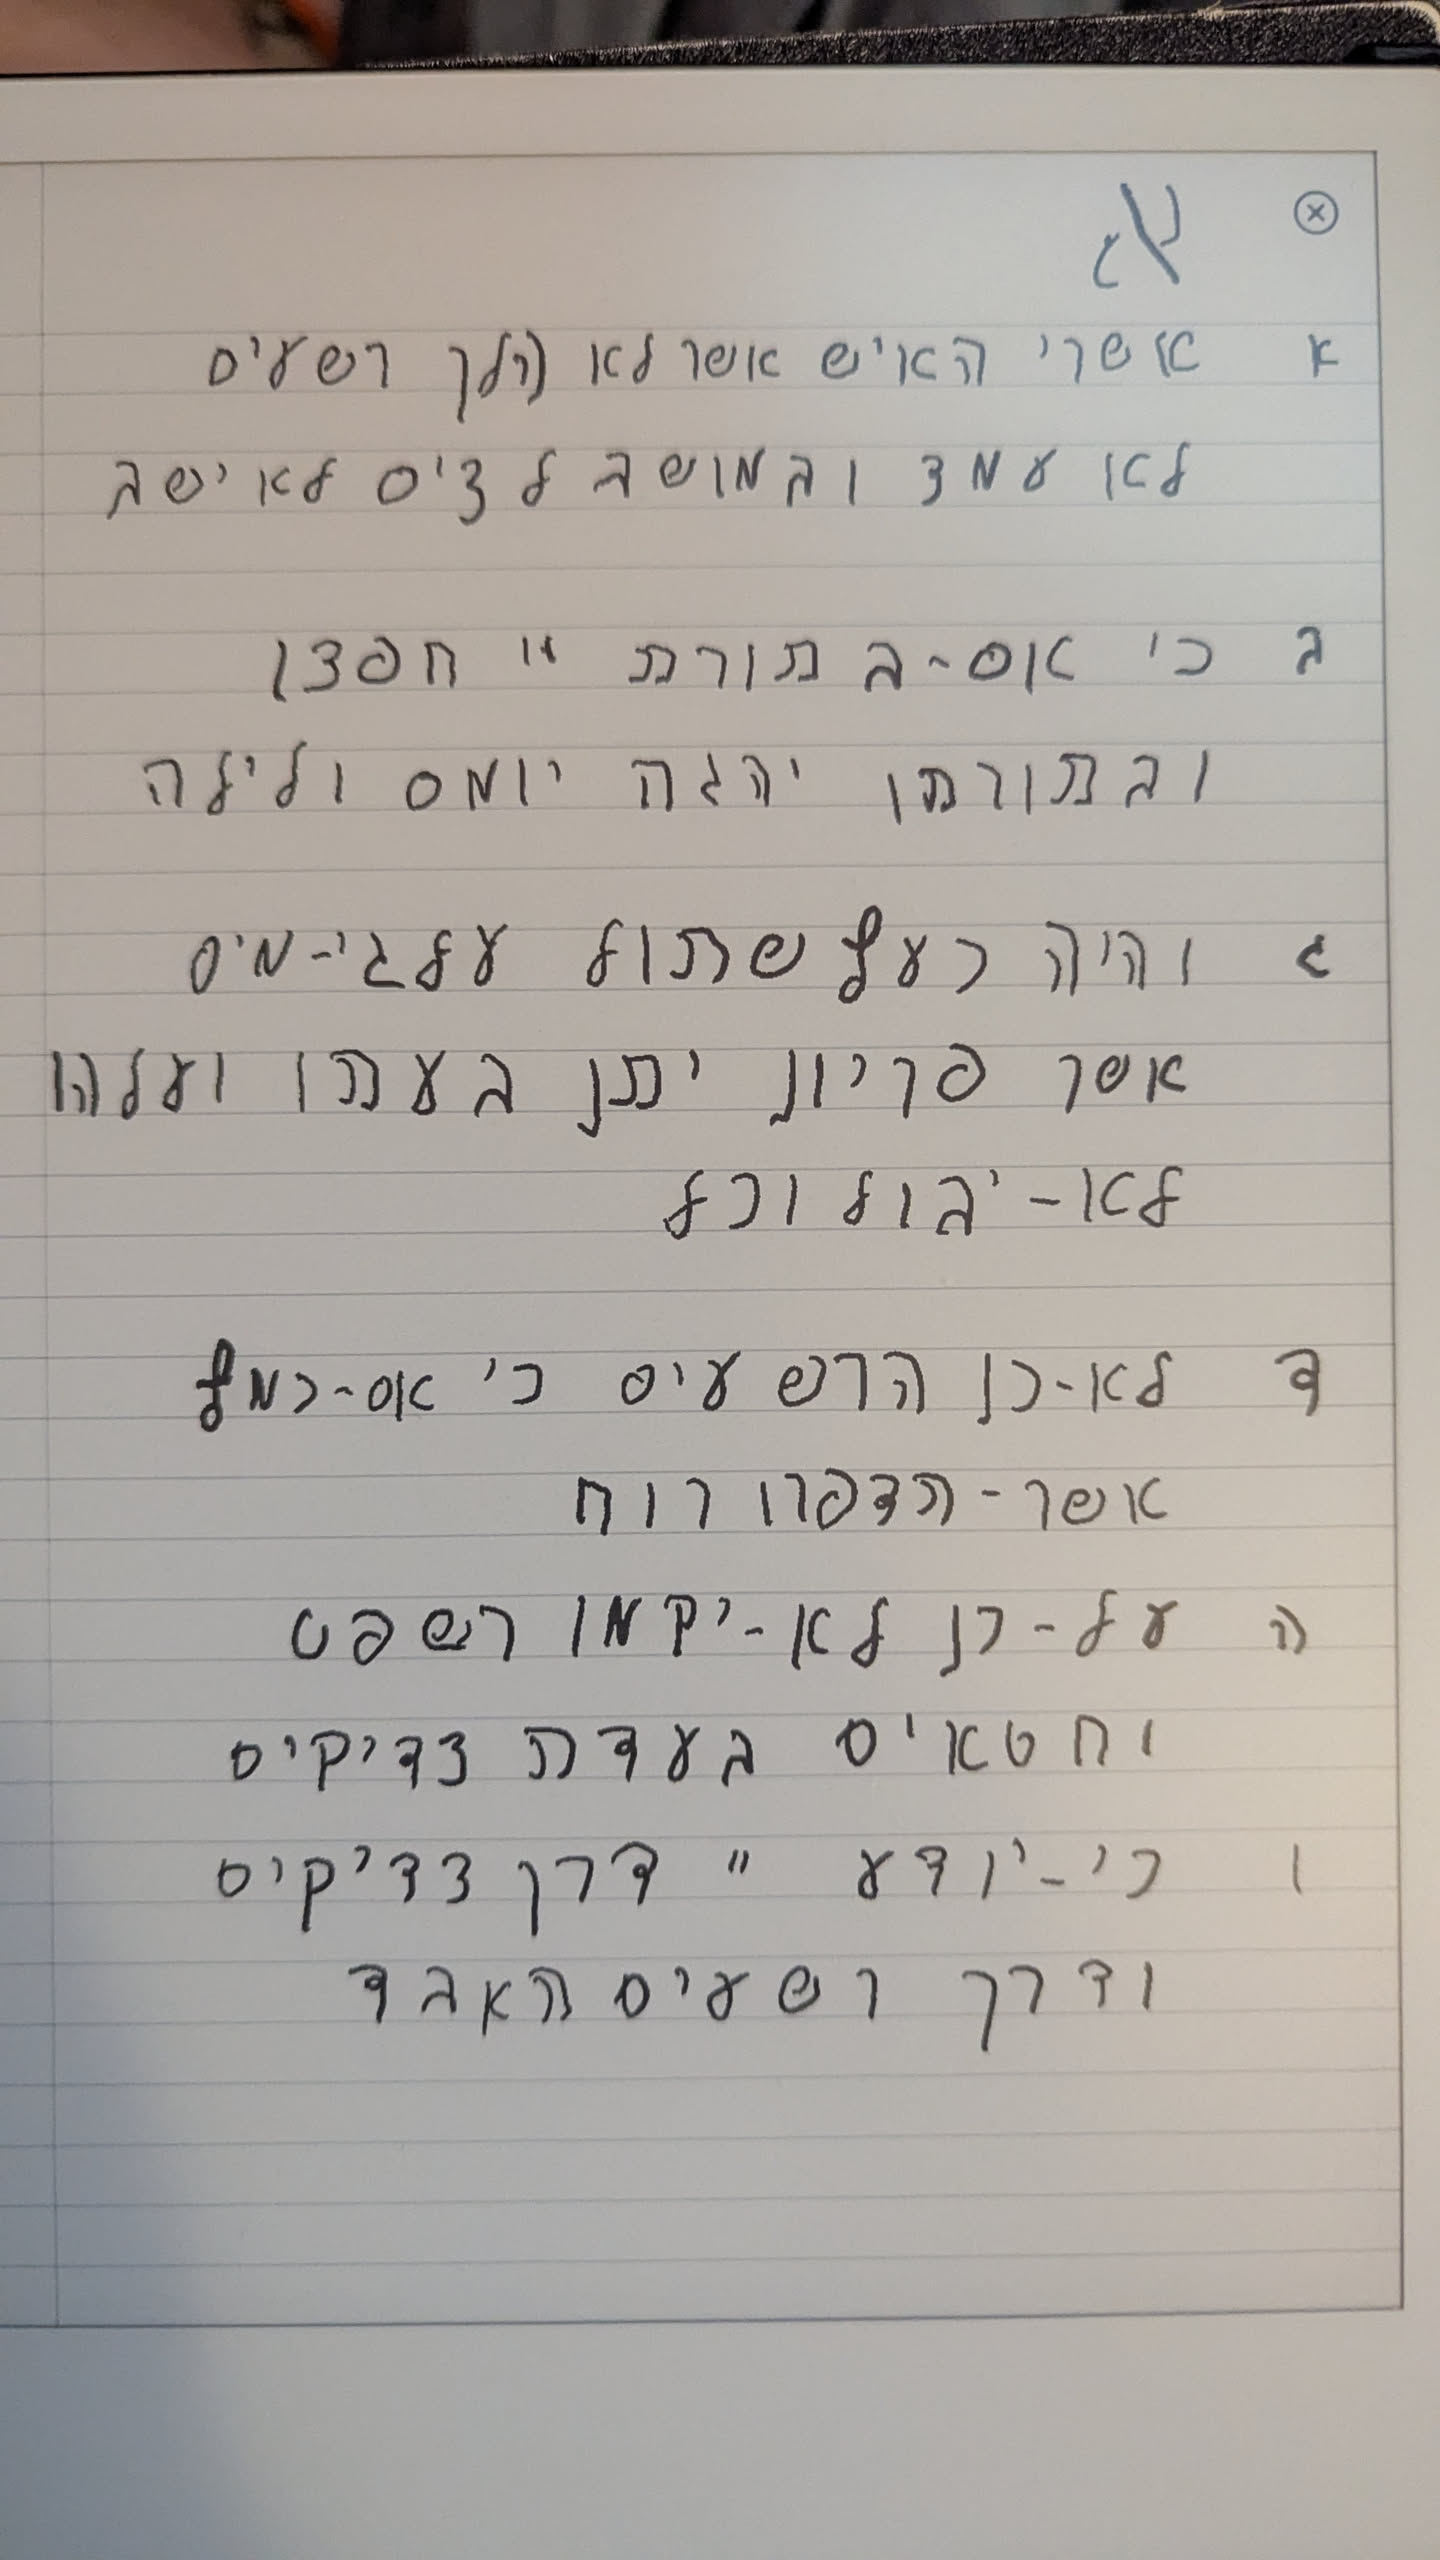 א
א אשרי האיש אשר לא הלך רשעים
לא עמד ובמושב לצים לא ישב
ב כי אם-בתורת יי חפצו
ובתורתו יהגה יומם ולילה
ג והיה כעץ שתול על גי-מים
אשר פריון יתן בעתו ועלהו
לא-יבול וכל
ד לא-כן הרשעים כי אם-כמץ
אשר-תדפרו רוח
ה על-כן לא-יקמו רשפט
וחטאים בעדת צדיקים
ו כי-יודע יי דרך צדיקים
ודרך רשעים האבד